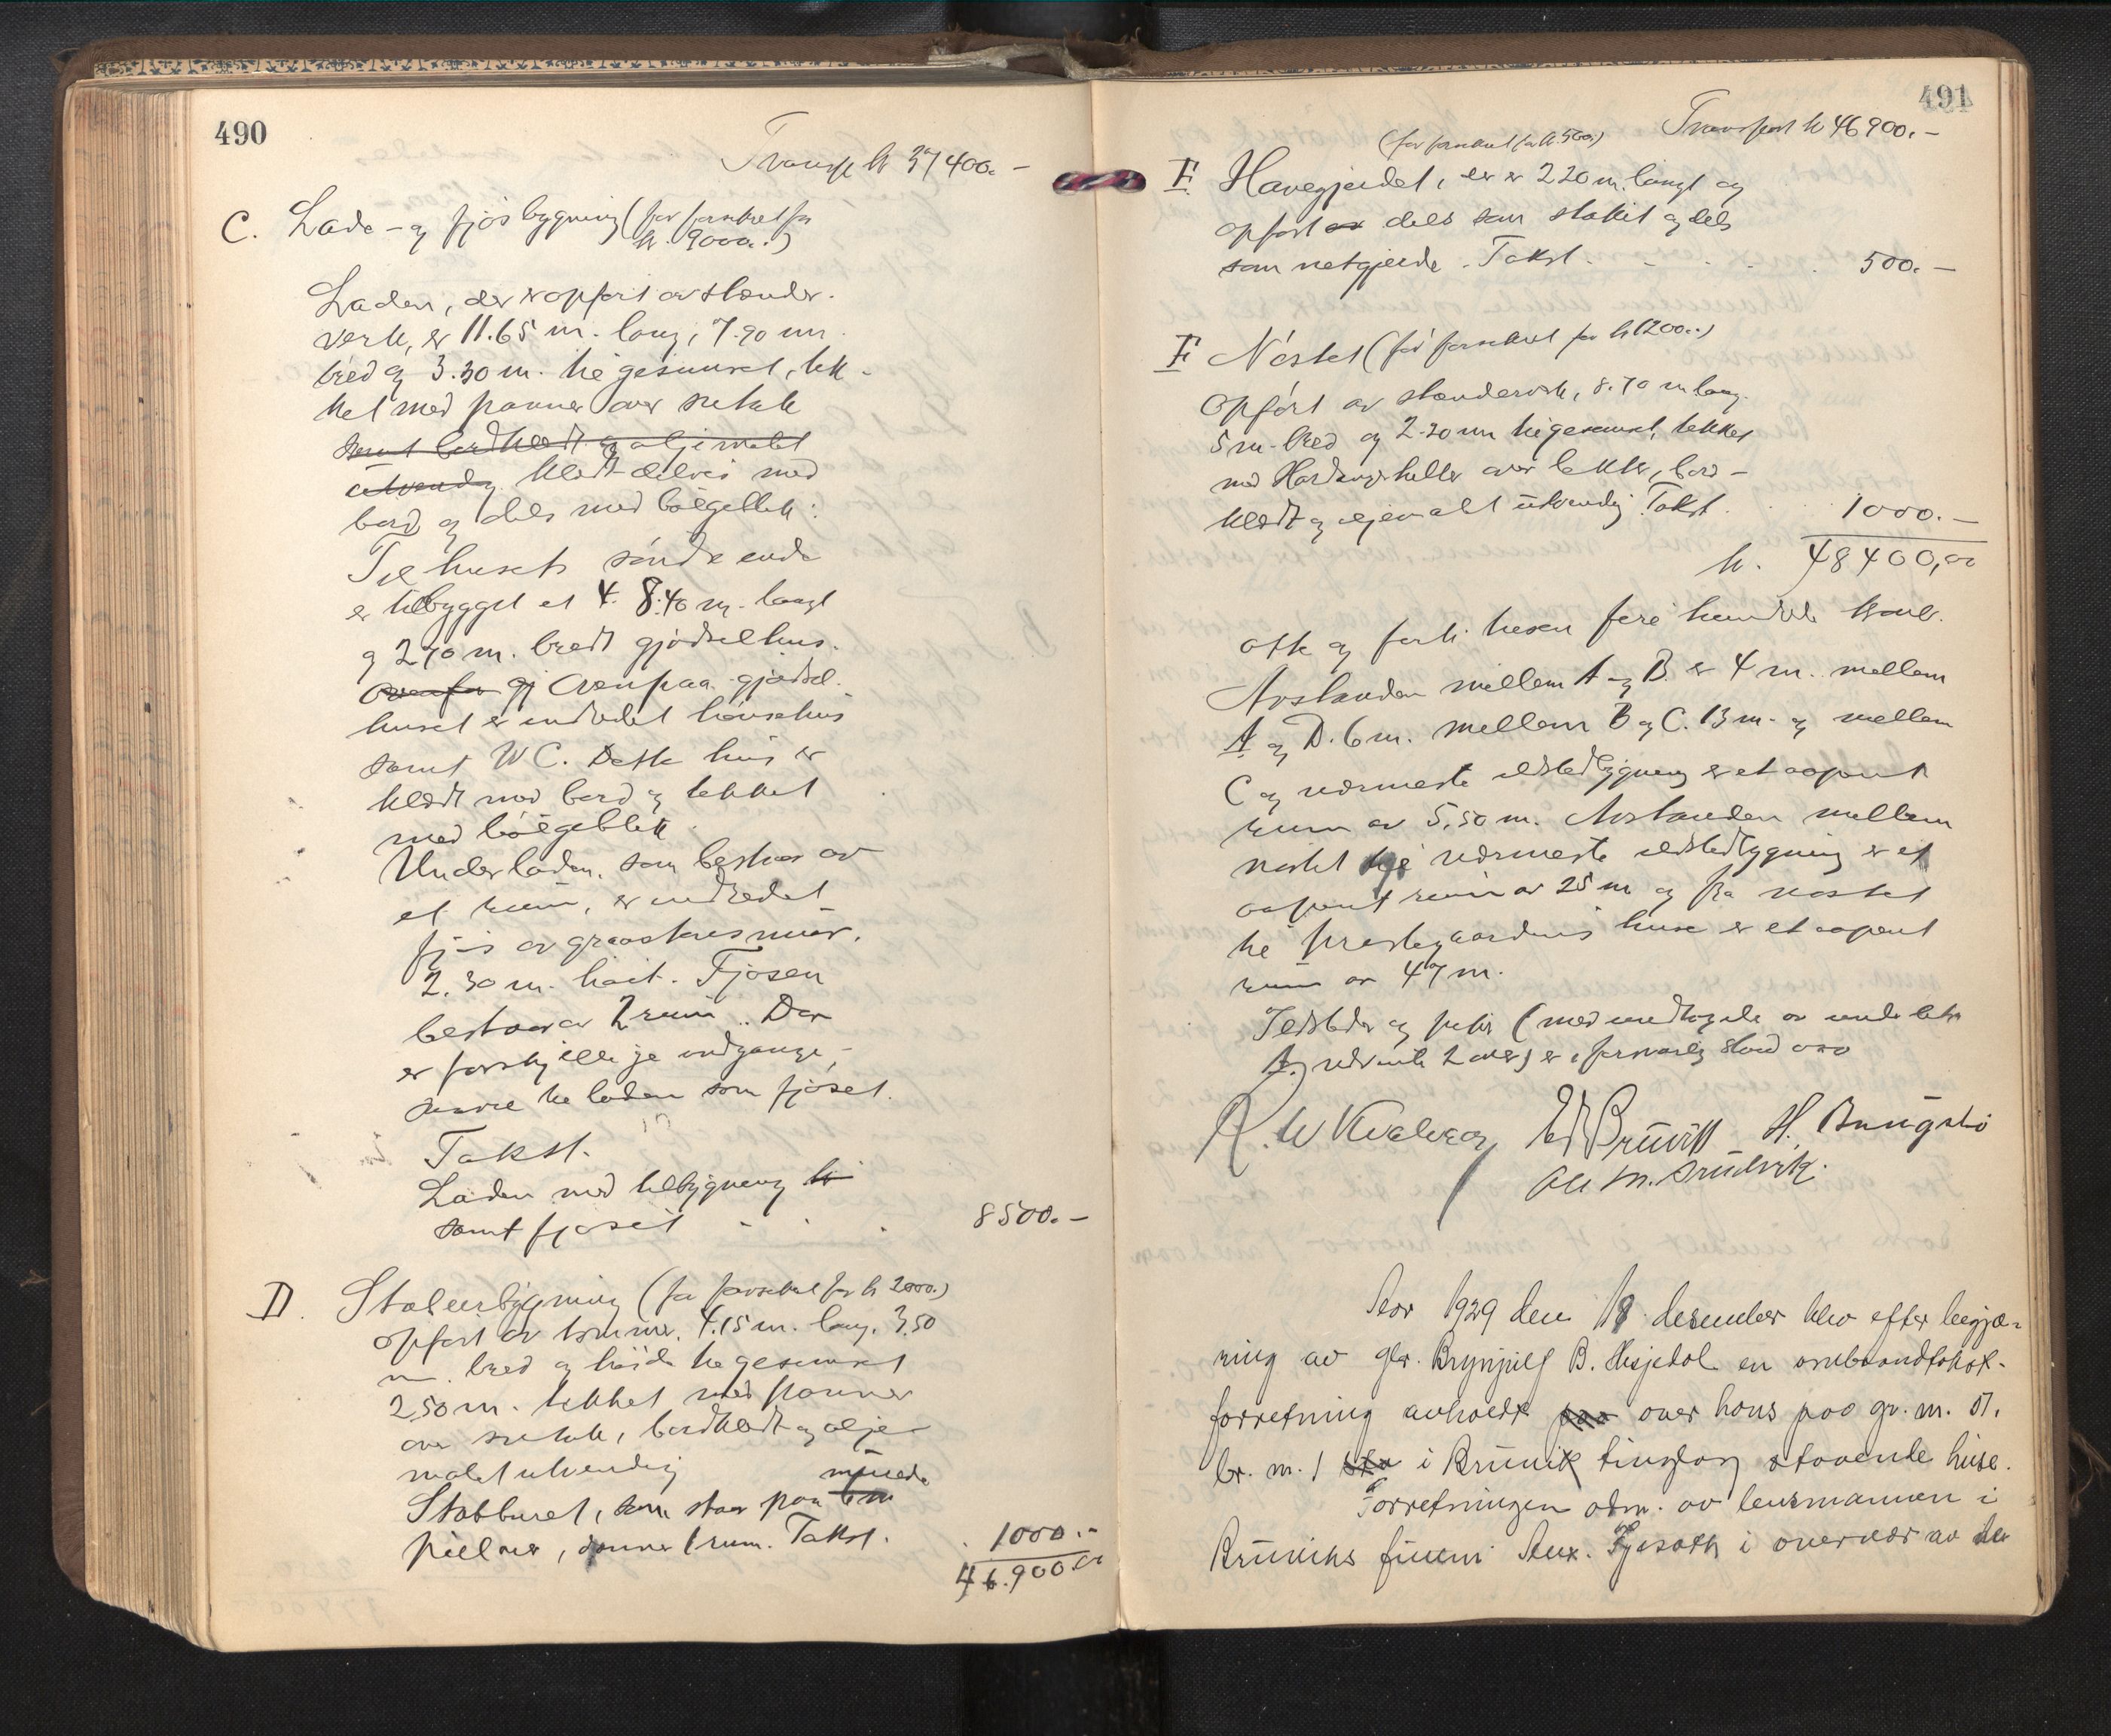 490
Transp. kr 37400.-
C. Lade- og fjösbygning (för forsikret for
kr. 9000.-)
Laden, der er opfört av stænder-
verk, er 11.65 m. lang, 7.90 m.
bred og 3.30 m. til gesimset, tek-
ket med panner over sutak
samt bordklædt og oljemalet
utvendig klædt delvis med
bord og dels med bölgeblik.
Til husets söndre ende
er tilbygget et 4. 8.40 m. langt
og 2.70 m. bredt gjödselhus.
ovenfor gj Ovenpaa gjödsel-
huset er indredet hönsehus
samt WC. Dette hus er
klædt med bord og tekket
med bölgeblik.
Under laden, som bestaar av
et rum, er indredet
fjös av graastensmur,
2.30 m. höit. Fjösen
bestaar av 2 rum. Der
er forskjellige indgange,
saavel til laden som fjöset.
Takst.
Laden med tilbygning kr
samt fjöset . . . 8500.-
D. Stabursbygning (för forsikret for kr 2000.-)
opfört av tömmer, 4.15 m. lang, 3.50
m. bred og höide til gesimset
2.50 m. tekket med panner
over sutak, bordklædt og olje-
malet utvendig
Stabburet, som staar paa murede
pillarer, danner 1 rum. Takst. . 1000.-
46.900.00
491
Transport kr 46900.-
(för forsikret for kr. 500.-)
E Havegjerdet, der er 220 m. langt og
opfört av dels som stakit og dels
som netgjerde. Takst. . . . . 500.-
F Nöstet (för forsikret for kr 1200.-)
Opfört av stænderverk, 8.70 m lang,
5 m. bred og 2.20 m til gesimset, tekket
med Hardangerheller over lekter, bord-
klædt og oljemalt utvendig. Takst. . . 1000.-
kr. 48400,00
otte og förti tusen fire hundrede kroner.
Avstanden mellem A og B. er 4 m. mellem
A og D. 6 m. mellem B og C. 13 m. og mellem
C og nærmeste ildstedbygning er et aapent
rum av 5.50 m. Avstanden mellem
nöstet og nærmeste ildstedbygning er et
aapent rum av 25 m og fra nöstet
til prestegaardens huse er et aapent
rum av 47 m.
Ildsteder og piper (med undtagelse av under litra
A. nævnte 2 ovner) er i forsvarlig stand
R. W Kvalvaag Ed Bruvik H. Aungsbö
Ole M. Bruvik.
Aar 1929 den 18 desember blev efter begjæ-
ring av gbr. Brynjulf B. Hisjedal en ombrandtakst-
forretning avholdt paa over hans paa gr. nr. 57.
br. nr. 1 sta i Bruvik tinglag staaende huse.
Forretningen adm. av lensmannen i
Bruviks fuldm. Alex. Gjesath i overvær av de